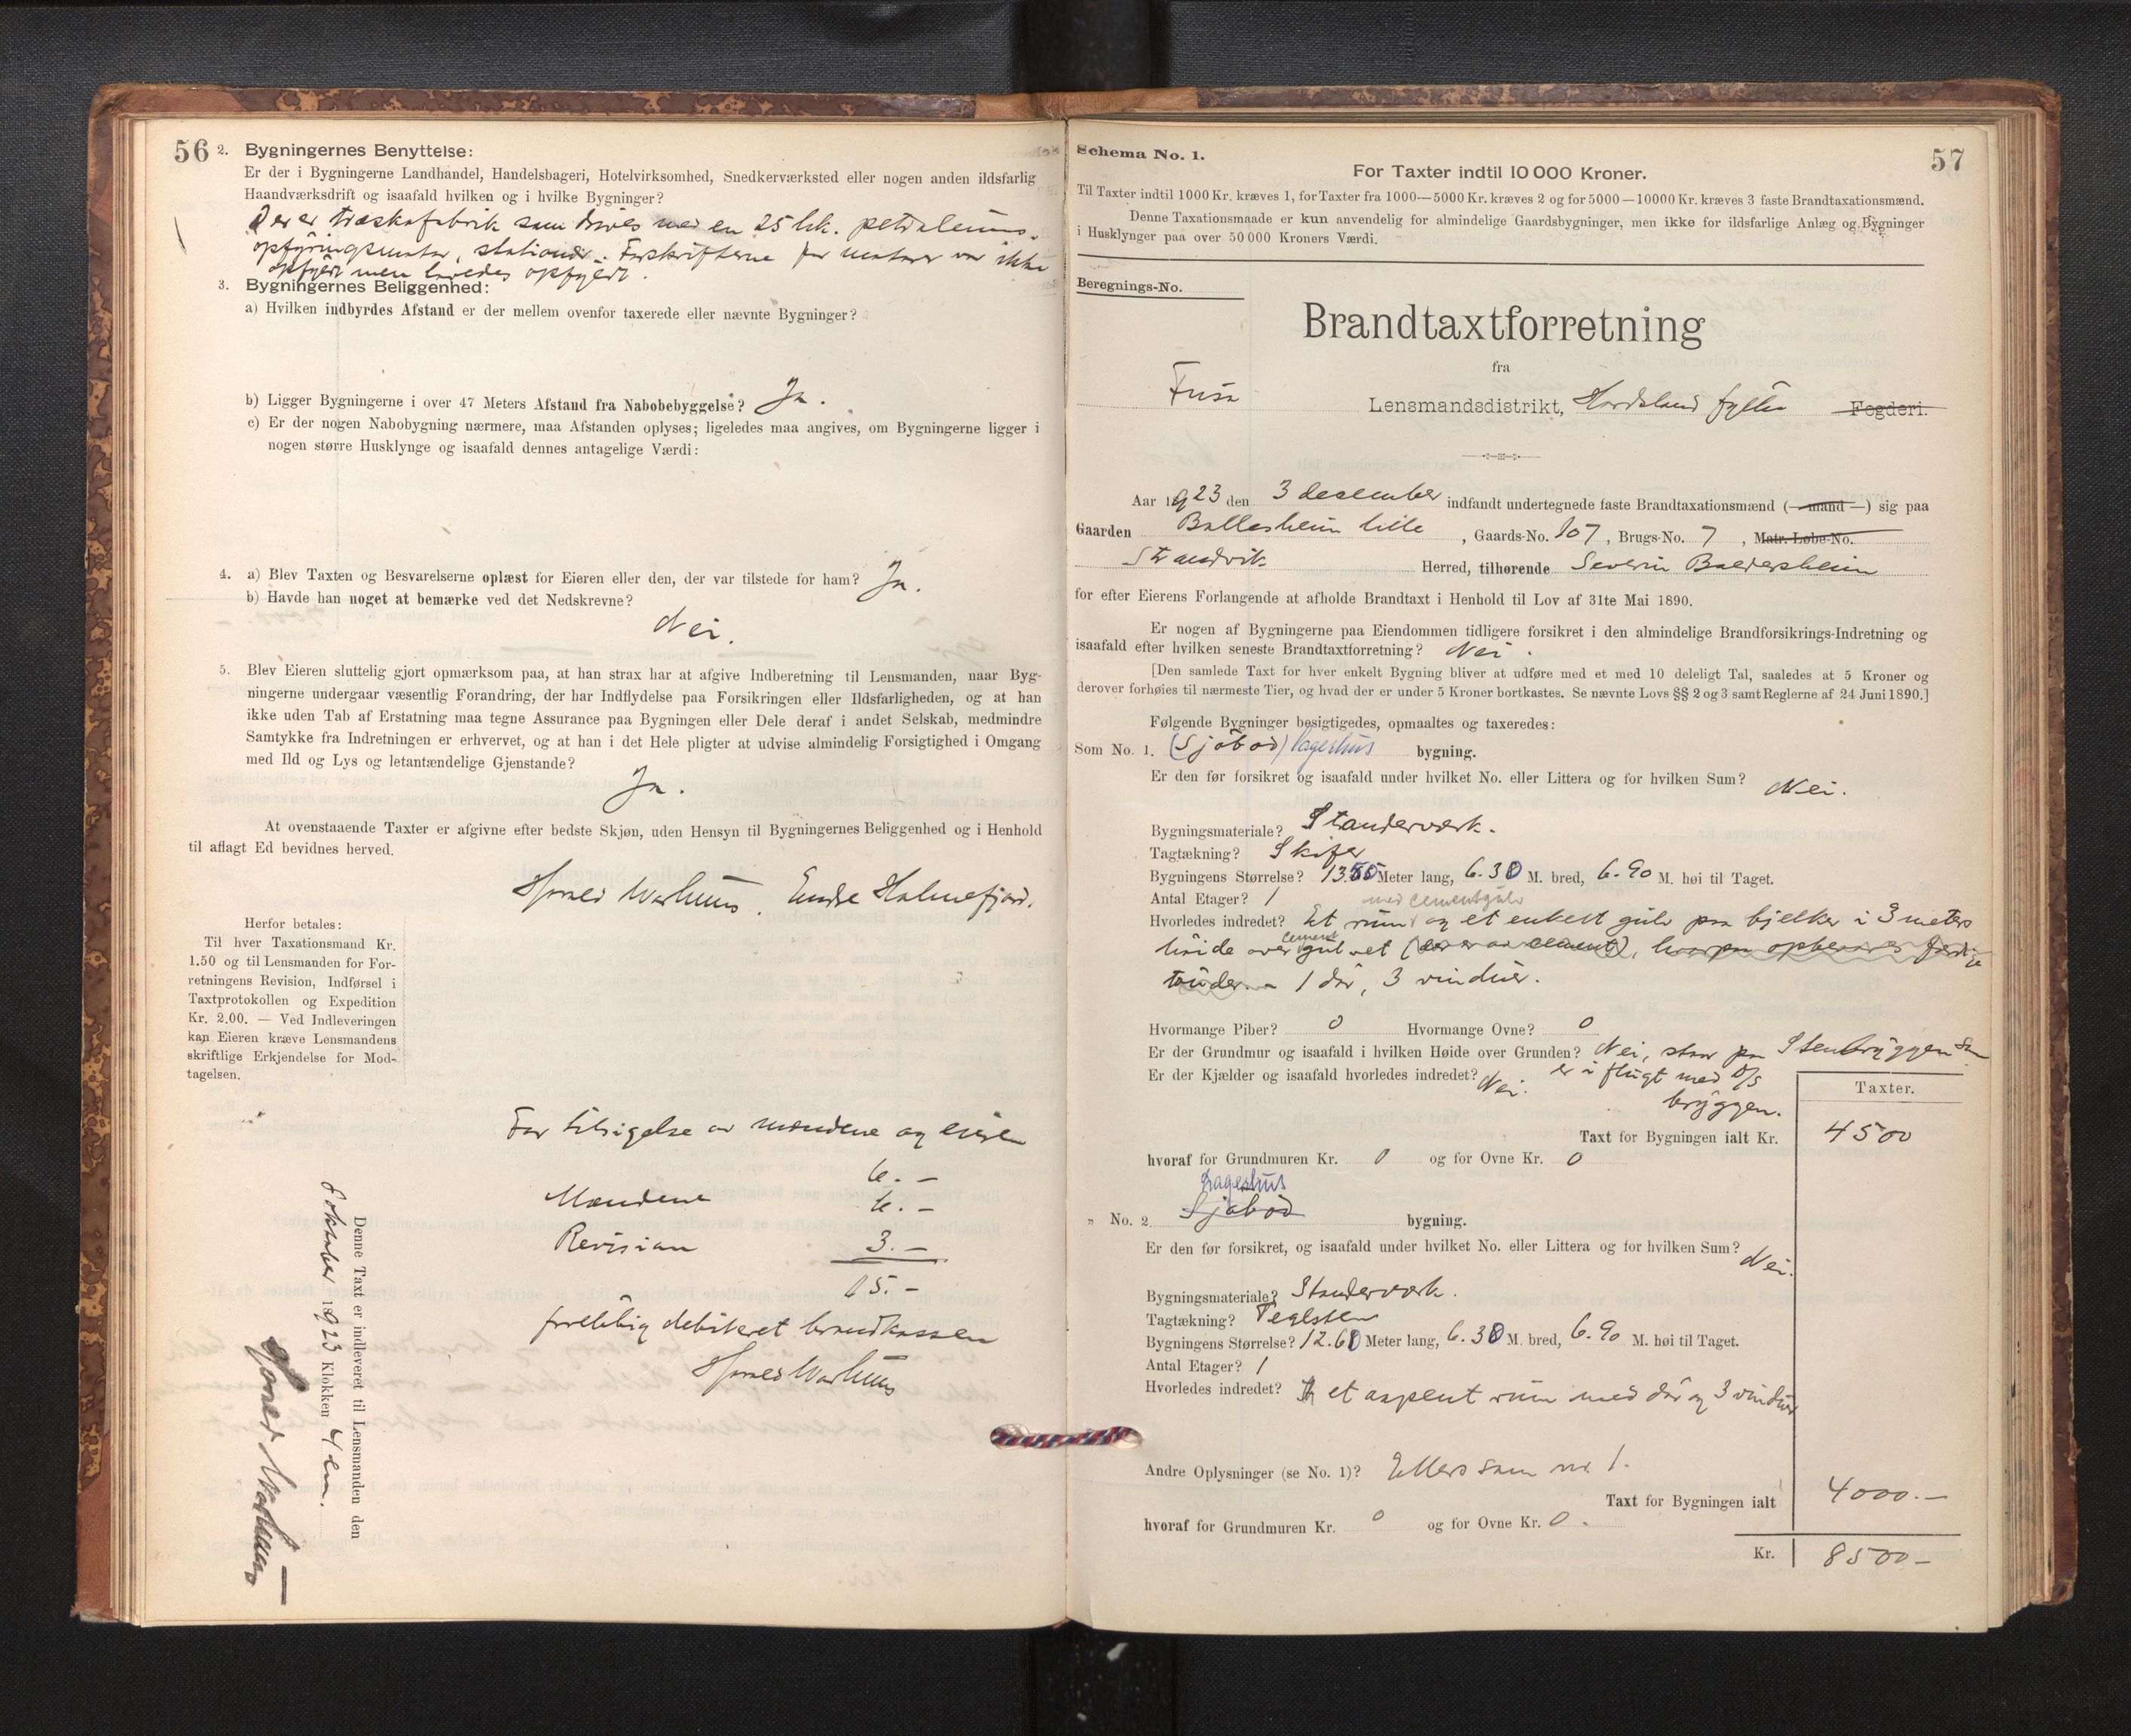 56
2. Bygningernes Benyttelse:
Er der i Bygningerne Landhandel, Handelsbageri, Hotelvirksomhed, Snedkerværksted eller nogen anden ildsfarlig
Haandværksdrift og isaafald hvilken og i hvilke Bygninger?
Der er træskofabrik som drives med en 25 hk. petroleums-
opfyringsmotor, stationær. Forskrifterne for motorer var ikke
opfyldt men lovedes opfyldt.
3. Bygningernes Beliggenhed:
a) Hvilken indbyrdes Afstand er der mellem ovenfor taxerede eller nævnte Bygninger?
b) Ligger Bygningerne i over 47 Meters Afstand fra Nabobebyggelse? Ja.
c) Er der nogen Nabobygning nærmere, maa Afstanden oplyses; ligeledes maa angives, om Bygningerne ligger i
nogen større Husklynge og isaafald dennes antagelige Værdi:
4. a) Blev Taxten og Besvarelserne oplæst for Eieren eller den, der var tilstede for ham? Ja.
b) Havde han noget at bemærke ved det Nedskrevne?
Nei.
5. Blev Eieren sluttelig gjort opmærksom paa, at han strax har at afgive Indberetning til Lensmanden, naar Byg-
ningerne undergaar væsentlig Forandring, der har Indflydelse paa Forsikringen eller Ildsfarligheden, og at han
ikke uden Tab af Erstatning maa tegne Assurance paa Bygningen eller Dele deraf i andet Selskab, medmindre
Samtykke fra Indretningen er erhvervet, og at han i det Hele pligter at udvise almindelig Forsigtighed i Omgang
med Ild og Lys og letantændelige Gjenstande?
Ja.
At ovenstaaende Taxter er afgivne efter bedste Skjøn, uden Hensyn til Bygningernes Beliggenhed og i Henhold
til aflagt Ed bevidnes herved.
Endre Holmefjord.
Herfor betales:
Til hver Taxationsmand Kr.
1.50 og til Lensmanden for For-
retningens Revision, Indførsel i
Taxtprotokollen og Expedition
Kr. 2.00. — Ved Indleveringen
kan Eieren kræve Lensmandens
skriftlige Erkjendelse for Mod-
tagelsen.
For tilsigelse av mændene og eieren
6.-
Mændene 6.-
Revision 3.-
15.-
foreløbig debiteret brandkassen
Denne Taxt er indleveret til Lensmanden den
8 oktober 1923 Klokken 4 em.
57
Schema No. 1.
For Taxter indtil 10 000 Kroner.
Til Taxter indtil 1000 Kr. kræves 1, for Taxter fra 1000—5000 Kr. kræves 2 og for 5000—10000 Kr. kræves 3 faste Brandtaxationsmænd.
Denne Taxationsmaade er kun anvendelig for almindelige Gaardsbygninger, men ikke for ildsfarlige Anlæg og Bygninger
i Husklynger paa over 50 000 Kroners Værdi.
Beregnings-No.
Brandtaxtforretning
fra
Fusa Lensmandsdistrikt, Hordaland fylke Fogderi.
Aar 1923 den 3 desember indfandt undertegnede faste Brandtaxationsmænd (— mand —) sig paa
Gaarden Ballesheim lille, Gaards-No. 107, Brugs-No. 7, Matr. Løbe-No.
Strandvik Herred, tilhørende Severin Baldersheim
for efter Eierens Forlangende at afholde Brandtaxt i Henhold til Lov af 31te Mai 1890.
Er nogen af Bygningerne paa Eiendommen tidligere forsikret i den almindelige Brandforsikrings-Indretning og
isaafald efter hvilken seneste Brandtaxtforretning? Nei.
[Den samlede Taxt for hver enkelt Bygning bliver at udføre med et med 10 deleligt Tal, saaledes at 5 Kroner og
derover forhøies til nærmeste Tier, og hvad der er under 5 Kroner bortkastes. Se nævnte Lovs §§ 2 og 3 samt Reglerne af 24 Juni 1890.]
Følgende Bygninger besigtigedes, opmaaltes og taxeredes:
Som No. 1. (Sjøbod) Lagerhus bygning.
Er den før forsikret og isaafald under hvilket No. eller Littera og for hvilken Sum? Nei.
Bygningsmateriale? Standerværk.
Tagtækning? Skifer
Bygningens Størrelse? 13.50 Meter lang, 6.30 M. bred, 6.90 M. høi til Taget.
Antal Etager? 1
med cementgulv
Hvorledes indredet? Et rum og et enkelt gulv paa bjelker i 3 meters
høide over cement gulvet (der er av cement), hvorpaa opbevares færdige
tønder. - 1 dør, 3 vinduer.
Hvormange Piber? 0 Hvormange Ovne? 0
Er der Grundmur og isaafald i hvilken Høide over Grunden? Nei, staar paa Stenbryggen som
er i flugt med D/S
bryggen.
Er der Kjælder og isaafald hvorledes indredet? Nei.
Taxter.
Taxt for Bygningen ialt Kr. 4500
hvoraf for Grundmuren Kr. 0 og for Ovne Kr. 0
Lagerhus
„ No. 2 Sjøbod bygning.
Er den før forsikret, og isaafald under hvilket No. eller Littera og for hvilken Sum? Nei.
Bygningsmateriale? Standerværk.
Tagtækning? Teglsten
Bygningens Størrelse? 12.60 Meter lang, 6.30 M. bred, 6.90 M. høi til Taget.
Antal Etager? 1
Hvorledes indredet? et aapent rum med dør og 3 vinduer
Andre Oplysninger (se No. 1)? Ellers som nr. 1.
Taxt for Bygningen ialt 4000.-
hvoraf for Grundmuren Kr. 0 og for Ovne Kr. 0.
Kr. 8500-